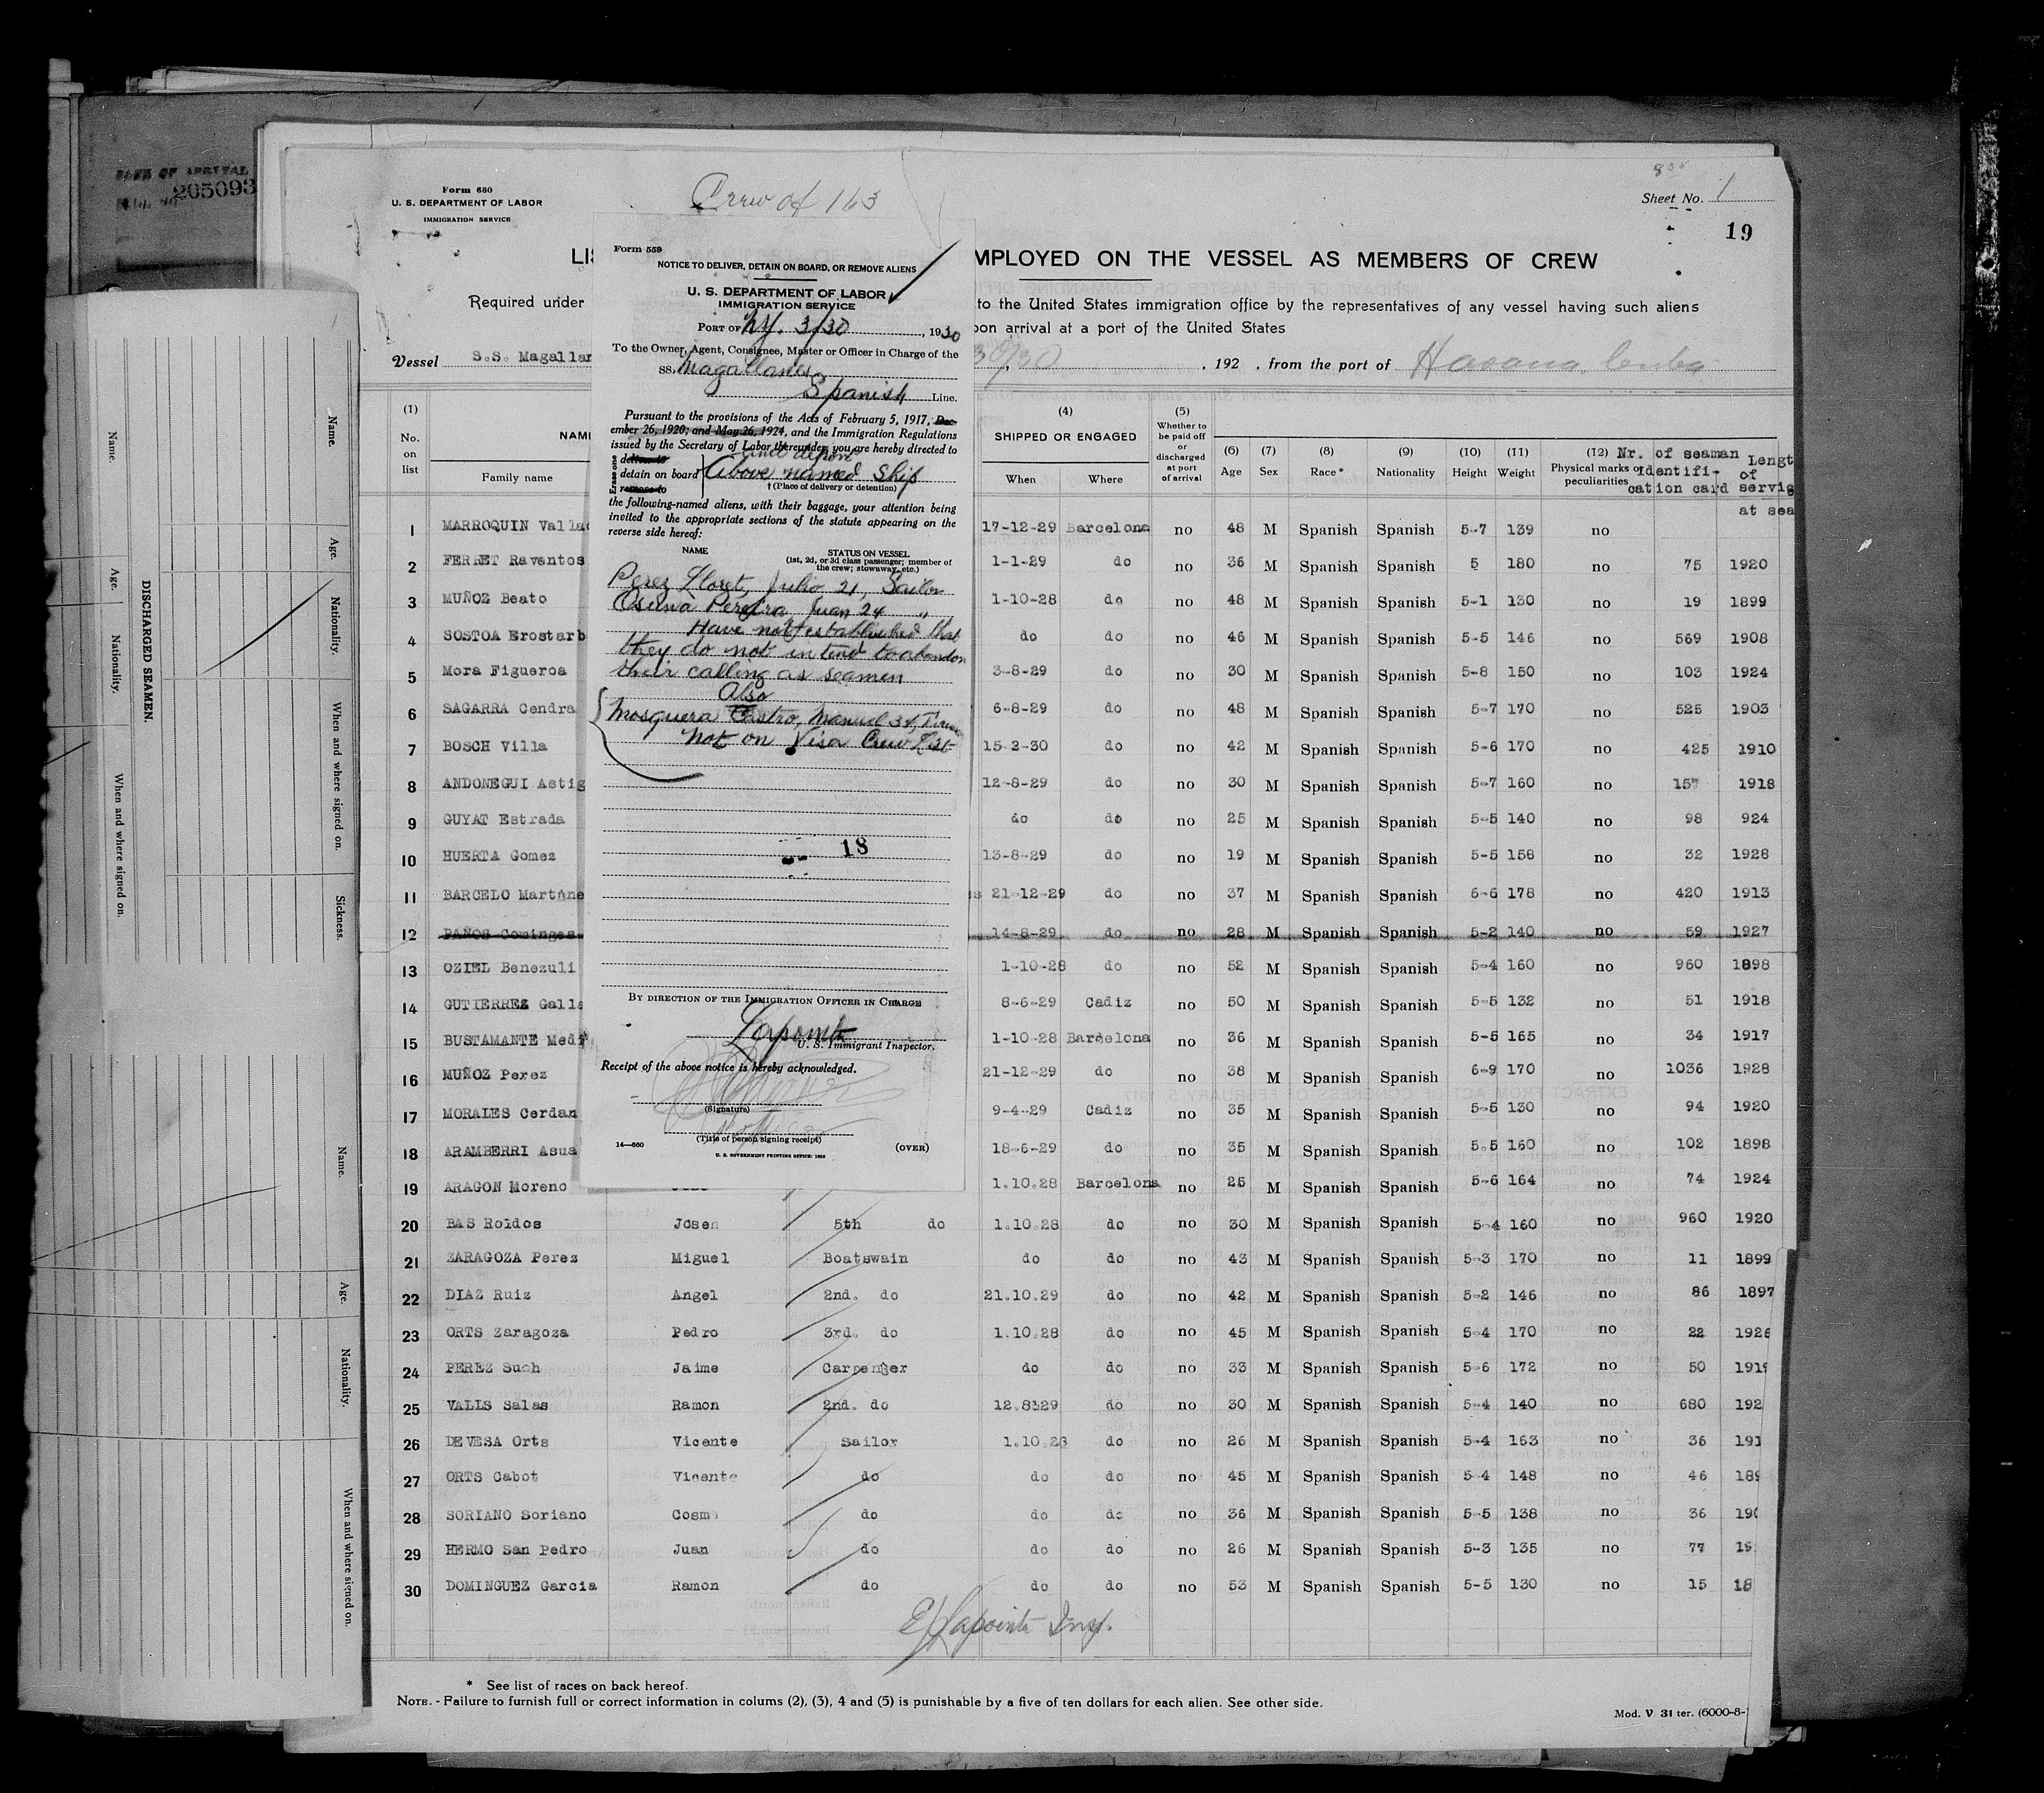 DATE OF ARRIVAL
205093
Form 680
U. S. DEPARTMENT OF LABOR
IMMIGRATION SERVICE
Crew of 163
Sheet No. 1
19
LIS
MPLOYED ON THE VESSEL AS MEMBERS OF CREW
Required under
to the United States immigration office by the representatives of any vessel having such aliens
pon arrival at a port of the United States
Vessel S.S. Magallan
30/30 , 192 , from the port of Havana, Cuba
Form 559
NOTICE TO DELIVER, DETAIN ON BOARD, OR REMOVE ALIENS
U. S. DEPARTMENT OF LABOR
IMMIGRATION SERVICE
PORT OF N.Y. 3/30, 1930
To the Owner, Agent, Consignee, Master or Officer in Charge of the
SS. Magallanes
Spanish Line.
Pursuant to the provisions of the Acts of February 5, 1917, Dec-
ember 26, 1920, and May 26, 1924, and the Immigration Regulations
issued by the Secretary of Labor thereunder, you are hereby directed to
and deport
Erase one
deliver to
detain on board
remove to
Above named Ship
† (Place of delivery or detention)
the following-named aliens, with their baggage, your attention being
invited to the appropriate sections of the statute appearing on the
reverse side hereof:
NAME
STATUS ON VESSEL
(1st, 2d, or 3d class passenger; member of
the crew; stowaway, etc.)
Perez Lloret, Julio 21, Sailor
Osuna Pereira Juan 24 "
Have not established that
they do not intend to abandon
their calling as seamen
Also
Mosquera Castro, Manuel
Not on Visa Crew List
18
BY DIRECTION OF THE IMMIGRATION OFFICER IN CHARGE
Lapointe
U. S. Immigrant Inspector.
Receipt of the above notice is hereby acknowledged.
(Signature)
(Title of person signing receipt)
14—660
(OVER)
U. S. GOVERNMENT PRINTING OFFICE: 1929
(1) No. on list
NAM
Family name
(4) SHIPPED OR ENGAGED
When
Where
(5) Whether to be paid off or discharged at port of arrival
(6) Age
(7) Sex
(8) Race *
(9) Nationality
(10) Height
(11) Weight
(12) Physical marks or peculiarities
Nr. of seaman Identifi- cation card
Lengt of servig at sea
1 MARROQUIN Vallad 17-12-29 Barcelona no 48 M Spanish Spanish 5-7 139 no
2 FERRET Raventos 1-1-29 do no 36 M Spanish Spanish 5 180 no 75 1920
3 MUÑOZ Beato 1-10-28 do no 48 M Spanish Spanish 5-1 130 no 19 1899
4 SOSTOA Erostarb do do no 46 M Spanish Spanish 5-5 146 no 569 1908
5 Mora Figueroa 3-8-29 do no 30 M Spanish Spanish 5-8 150 no 103 1924
6 SAGARRA Cendra 6-8-29 do no 48 M Spanish Spanish 5-7 170 no 525 1903
7 BOSCH Villa 15-2-30 do no 42 M Spanish Spanish 5-6 170 no 425 1910
8 ANDONEGUI Astig 12-8-29 do no 30 M Spanish Spanish 5-7 160 no 157 1918
9 GUYAT Estrada do do no 25 M Spanish Spanish 5-5 140 no 98 924
10 HUERTA Gomez 13-8-29 do no 19 M Spanish Spanish 5-5 158 no 32 1928
11 BARCELO Martine 21-12-29 do no 37 M Spanish Spanish 6-6 178 no 420 1913
12 BAÑOS Cominges 14-8-29 do no 28 M Spanish Spanish 5-2 140 no 59 1927
13 OZIEL Benezuli 1-10-28 do no 52 M Spanish Spanish 5-4 160 no 960 1898
14 GUTIERREZ Galla 8-6-29 Cadiz no 50 M Spanish Spanish 5-5 132 no 51 1918
15 BUSTAMANTE Medi 1-10-28 Barcelona no 36 M Spanish Spanish 5-5 165 no 34 1917
16 MUÑOZ Perez 21-12-29 do no 38 M Spanish Spanish 6-9 170 no 1036 1928
17 MORALES Cerdan 9-4-29 Cadiz no 35 M Spanish Spanish 5-5 130 no 94 1920
18 ARAMBERRI Asua 18-6-29 do no 35 M Spanish Spanish 5.5 160 no 102 1898
19 ARAGON Moreno 1.10.28 Barcelona no 25 M Spanish Spanish 5-6 164 no 74 1924
20 BAS Roldos Josen 5th do 1.10.28 do no 30 M Spanish Spanish 5-4 160 no 960 1920
21 ZARAGOZA Perez Miguel Boatswain do do no 43 M Spanish Spanish 5-3 170 no 11 1899
22 DIAZ Ruiz Angel 2nd. do 21.10.29 do no 42 M Spanish Spanish 5-2 146 no 86 1897
23 ORTS Zaragoza Pedro 3rd. do 1.10.28 do no 45 M Spanish Spanish 5-4 170 no 22 1926
24 PEREZ Such Jaime Carpenter do do no 33 M Spanish Spanish 5-6 172 no 50 1919
25 VALLS Salas Ramon 2nd. do 12.8329 do no 30 M Spanish Spanish 5-4 140 no 680 192
26 DEVESA Orts Vicente Sailor 1.10.28 do no 26 M Spanish Spanish 5-4 163 no 36 191
27 ORTS Cabot Vicente do do do no 45 M Spanish Spanish 5-4 148 no 46 189
28 SORIANO Soriano Cosme do do do no 36 M Spanish Spanish 5-5 138 no 36 190
29 HERMO San Pedro Juan do do do no 26 M Spanish Spanish 5-3 135 no 77 19
30 DOMINGUEZ Garcia Ramon do do do no 53 M Spanish Spanish 5-5 130 no 15 18
E Lapointe Insp.
* See list of races on back hereof.
NOTE. - Failure to furnish full or correct information in colums (2), (3), 4 and (5) is punishable by a five of ten dollars for each alien. See other side.
Mod. V 31 ter. (6000-8-
DISCHARGED SEAMEN.
Name.
Age.
Nationality.
When and where signed on.
Name.
Age.
Nationality.
When and where signed on.
Sickness.
Name.
Age.
Nationality.
When and where signed on.